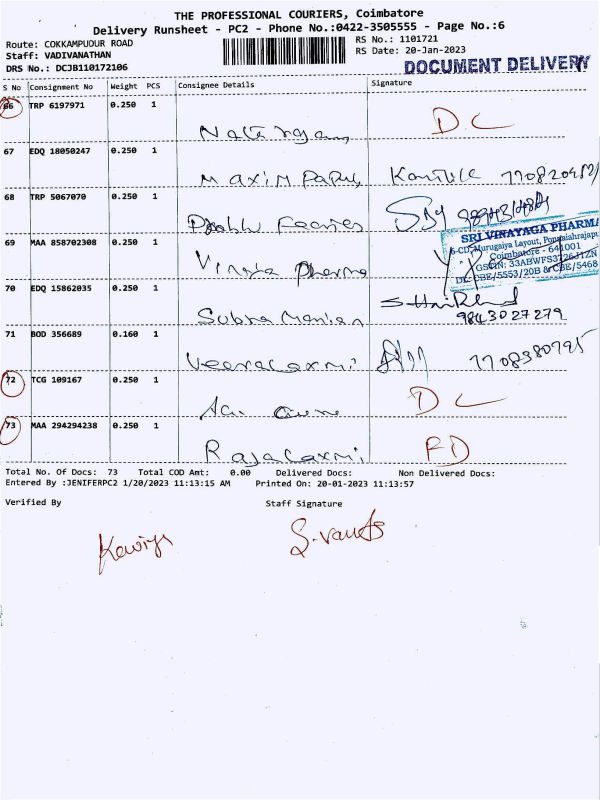 THE PROFESSIONAL COURIERS, Coimbatore
Delivery Runsheet - PC2 - Phone No.:0422-3505555 - Page No.:6
Route: COKKAMPUDUR ROAD
RS No.: 1101721
Staff: VADIVANATHAN
RS Date: 20-Jan-2023
DRS No.: DCJB110172106
DOCUMENT DELIVERY
S No Consignment No Weight PCS Consignee Details Signature
66 TRP 6197971 0.250 1
DC
67 EDQ 18050247 0.250 1
68 TRP 5067070 0.250 1
Prabhu
69 MAA 858702308 0.250 1
Pharma
SRI VINAYAGA PHARMA
Murugaiya Layout,
Coimbatore - 641001
70 EDQ 15862035 0.250 1
Subra Manian
9843027279
71 BOD 356689 0.160 1
Veeralaxmi
7708380795
72 TCG 109167 0.250 1
DC
73 MAA 294294238 0.250 1
Rajalaxmi
RD
Total No. Of Docs: 73 Total COD Amt: 0.00 Delivered Docs: Non Delivered Docs:
Entered By :JENIFERPC2 1/20/2023 11:13:15 AM Printed On: 20-01-2023 11:13:57
Verified By Staff Signature